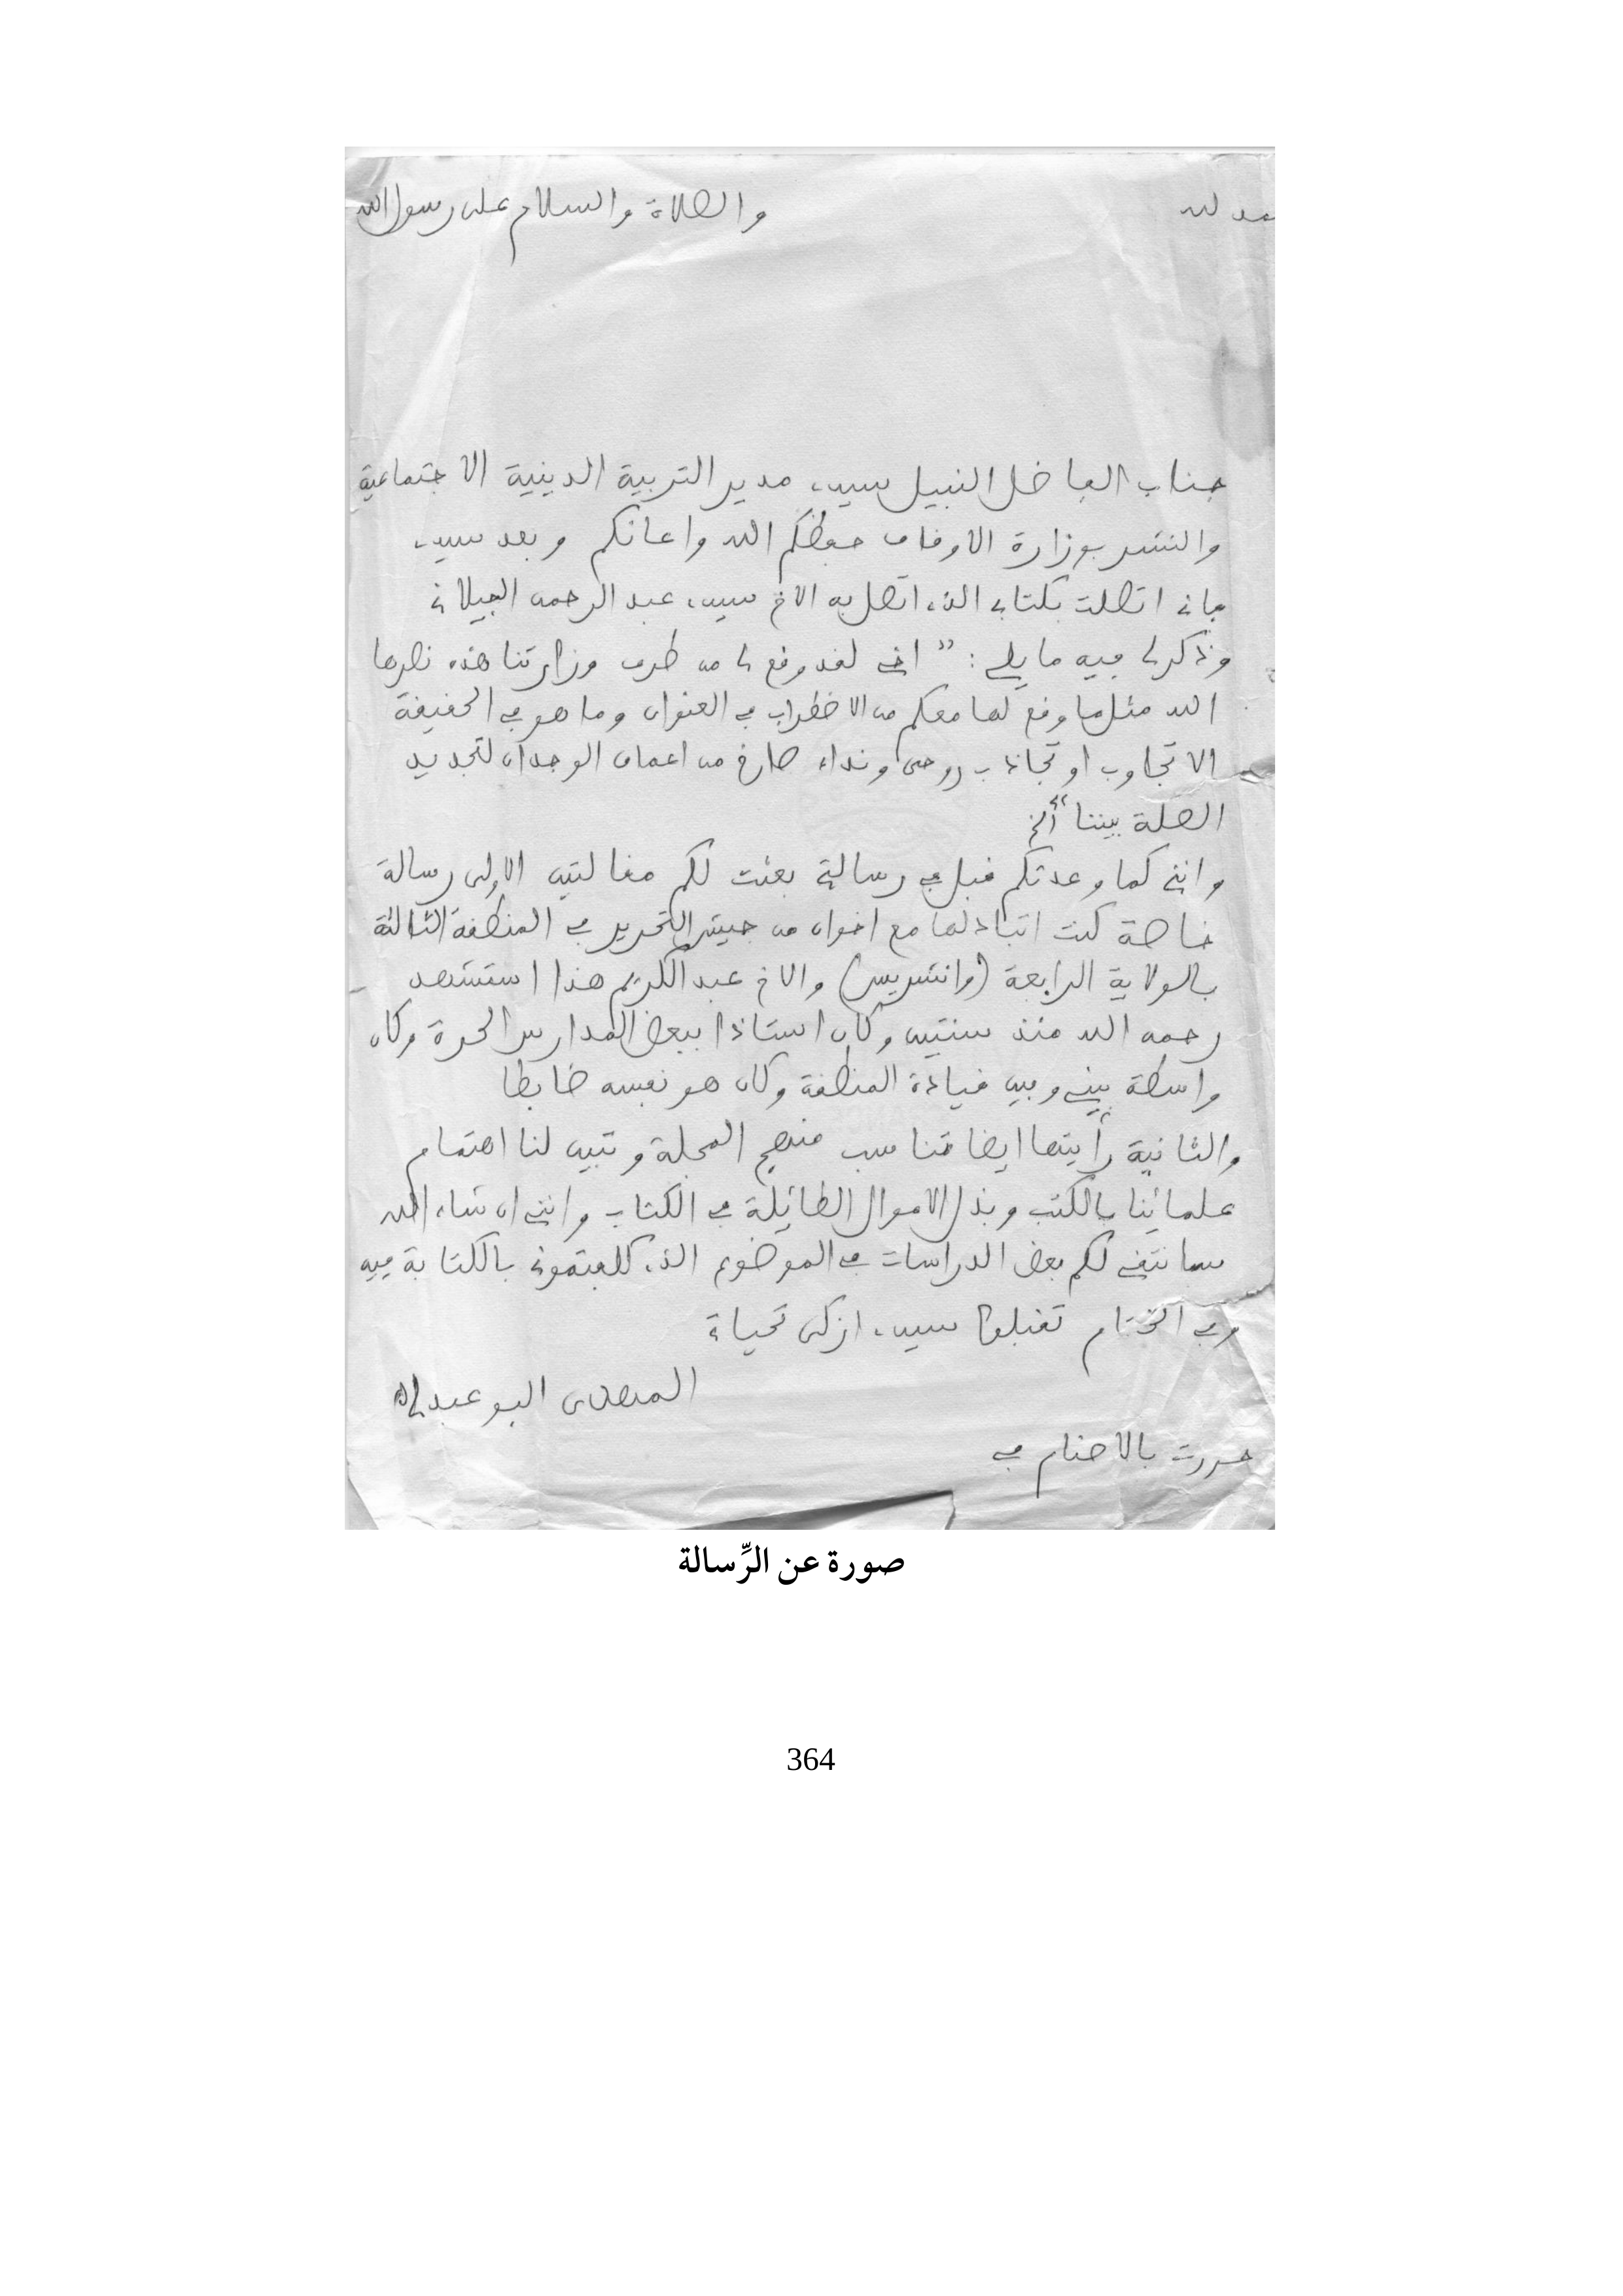 مد لله والصلاة والسلام على رسول الله
جناب الفاضل النبيل سيدي مدير التربية الدينية الاجتماعية
والنشر بوزارة الاوقاف حفظكم الله واعانكم وبعد سيدي
فاني اتصلت بكتابي الذي اتصل به الاخ سيدي عبد الرحمن الجيلاني
وذكر لي فيه ما يلي : " اني لقد وقع لي من طرف وزارتنا هذه نصرها
الله مثلما وقع لها معكم من الاضطراب في العنوان وما هو في الحقيقة
الا تجاوب او تجاذب روحي ونداء صارخ من اعماق الوجدان لتجديد
الصلة بيننا" ألخ
وانني كما وعدتكم قبل في رسالتي بعثت لكم مقالتين الاولى رسالة
خاصة كنت اتبادلها مع اخوان من جيش التحرير في المنطقة الثالثة
بالولاية الرابعة (وانشريس) والاخ عبد الكريم هذا استشهد
رحمه الله منذ سنتين وكان استاذا ببعض المدارس الحرة وكان
واسطة بيني وبين قيادة المنطقة وكان هو نفسه ضابطا
والثانية رأيتها ايضا تناسب منهج المجلة وتبين لنا اهتمام
علمائنا بالكتب وبذل الاموال الطائلة في الكتاب وانني ان شاء الله
سانتقي لكم بعض الدراسات في الموضوع الذي كلفتموني بالكتابة فيه
وفي الختام تقبلوا سيدي ازكى تحياة
المهدي البوعبدلي
حررت بالاصنام في
صورة عن الرِّسالة
364